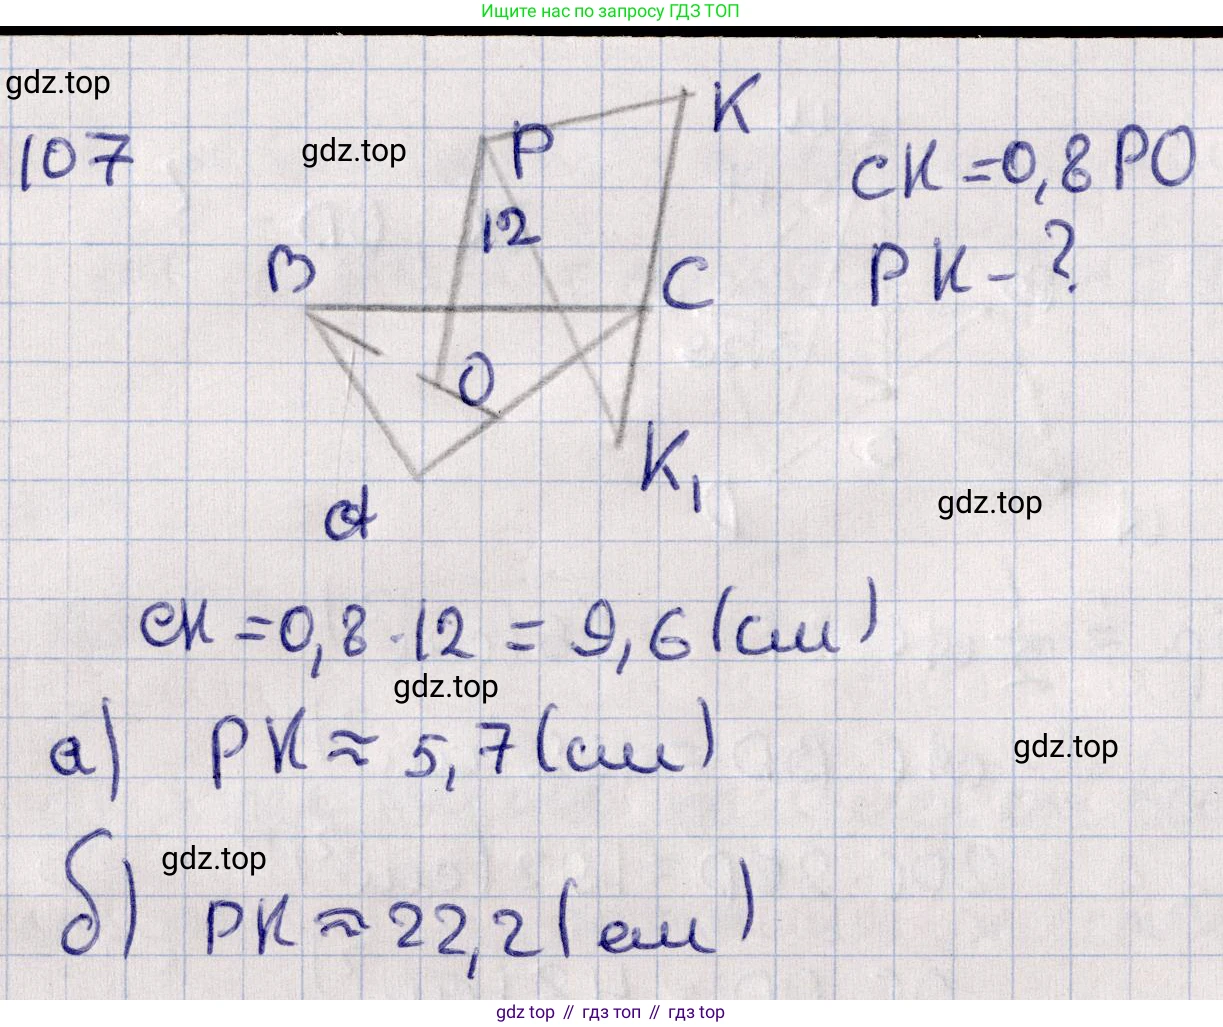 Ищите нас по запросу ГДЗ ТОП
gdz.top
107
gdz.top
P
K
CK = 0,8 PO
12
B
C
PK - ?
O
K₁
A
gdz.top
CK = 0,8 · 12 = 9,6 (см)
gdz.top
а) PK ≈ 5,7 (см)
gdz.top
gdz.top
б) PK ≈ 22,2 (см)
gdz.top // гдз топ // гдз top